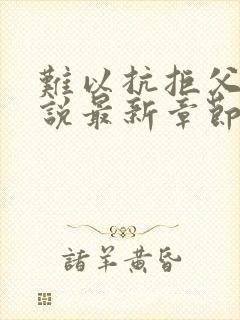 難以抗拒父
說最新章節
諸羊黄昏